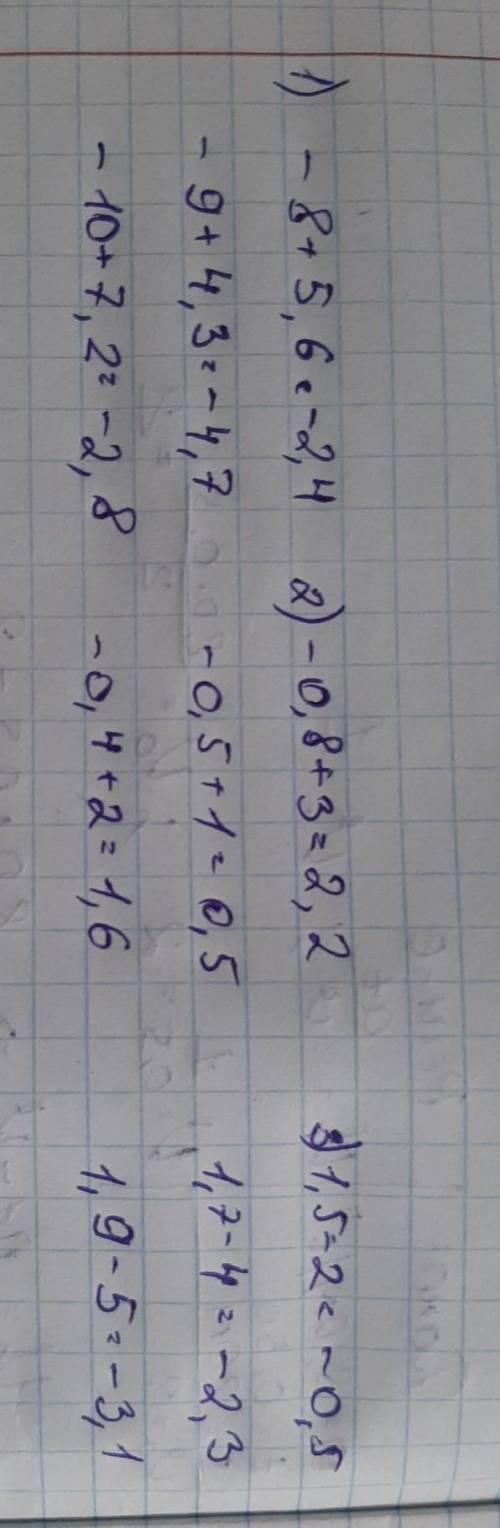 1) - 8 + 5,6 = -2,4 2) - 0,8 + 3 = 2,2 3) 1,5 - 2 = - 0,5
- 9 + 4,3 = - 4,7 - 0,5 + 1 = 0,5 1,7 - 4 = - 2,3
- 10 + 7,2 = - 2,8 - 0,4 + 2 = 1,6 1,9 - 5 = - 3,1